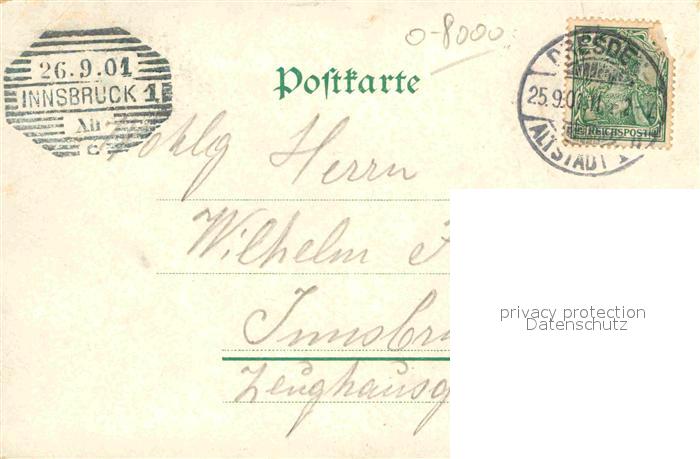 0-8000
26.9.01
INNSBRUCK 1
Postkarte
DRESDEN
25.9.01
ALTSTADT 1
REICHSPOST
Herrn
Wilhelm
Innsbru
Zeughausg
privacy protection
Datenschutz